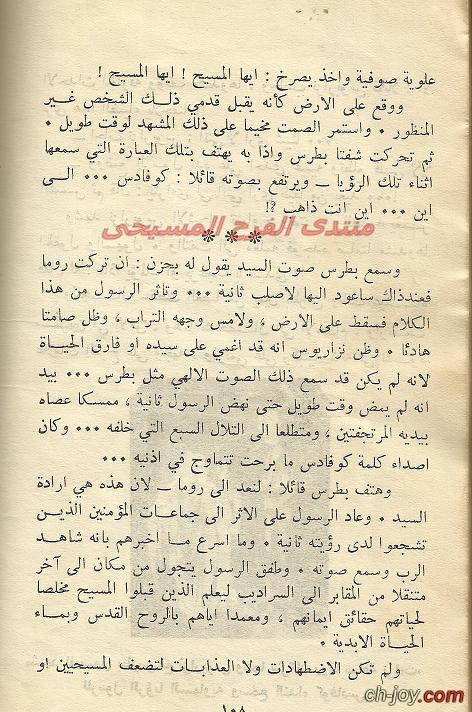 علوية صوفية واخذ يصرخ : ايها المسيح ! ايها المسيح !
ووقع على الارض كأنه يقبل قدمي ذلك الشخص غير
المنظور • واستمر الصمت مخيما على ذلك المشهد لوقت طويل •
ثم تحركت شفتا بطرس واذا به يهتف بتلك العبارة التي سمعها
اثناء تلك الرؤيا ـ ويرتفع بصوته قائلا : كوفادس ••• الى
اين ••• اين انت ذاهب ؟!
منتدى الفرح المسيحى
* * *
وسمع بطرس صوت السيد يقول له بحزن : ان تركت روما
فعندذاك ساعود اليها لاصلب ثانية ••• وتاثر الرسول من هذا
الكلام فسقط على الارض ، ولامس وجهه التراب ، وظل صامتا
هادئا • وظن نزاريوس انه قد اغمي على سيده او فارق الحياة
لانه لم يكن قد سمع ذلك الصوت الالهي مثل بطرس ••• بيد
انه لم يمض وقت طويل حتى نهض الرسول ثانية ، ممسكا عصاه
بيديه المرتجفتين ، ومتطلعا الى التلال السبع التي خلفه ••• وكان
اصداء كلمة كوفادس ما برحت تتماوج في اذنيه •••
وهتف بطرس قائلا : لنعد الى روما ـ لان هذه هي ارادة
السيد • وعاد الرسول على الاثر الى جماعات المؤمنين الذين
تشجعوا لدى رؤيته ثانية • وما اسرع ما اخبرهم بانه شاهد
الرب وسمع صوته • وطفق الرسول يتجول من مكان الى آخر
متنقلا من المقابر الى السراديب ليعلم الذين قبلوا المسيح مخلصا
لحياتهم حقائق ايمانهم ، ومعمدا اياهم بالروح القدس وبماء
الحياة الابدية •
ولم تكن الاضطهادات ولا العذابات لتضعف المسيحيين !و
ch-joy.com
١٠٨